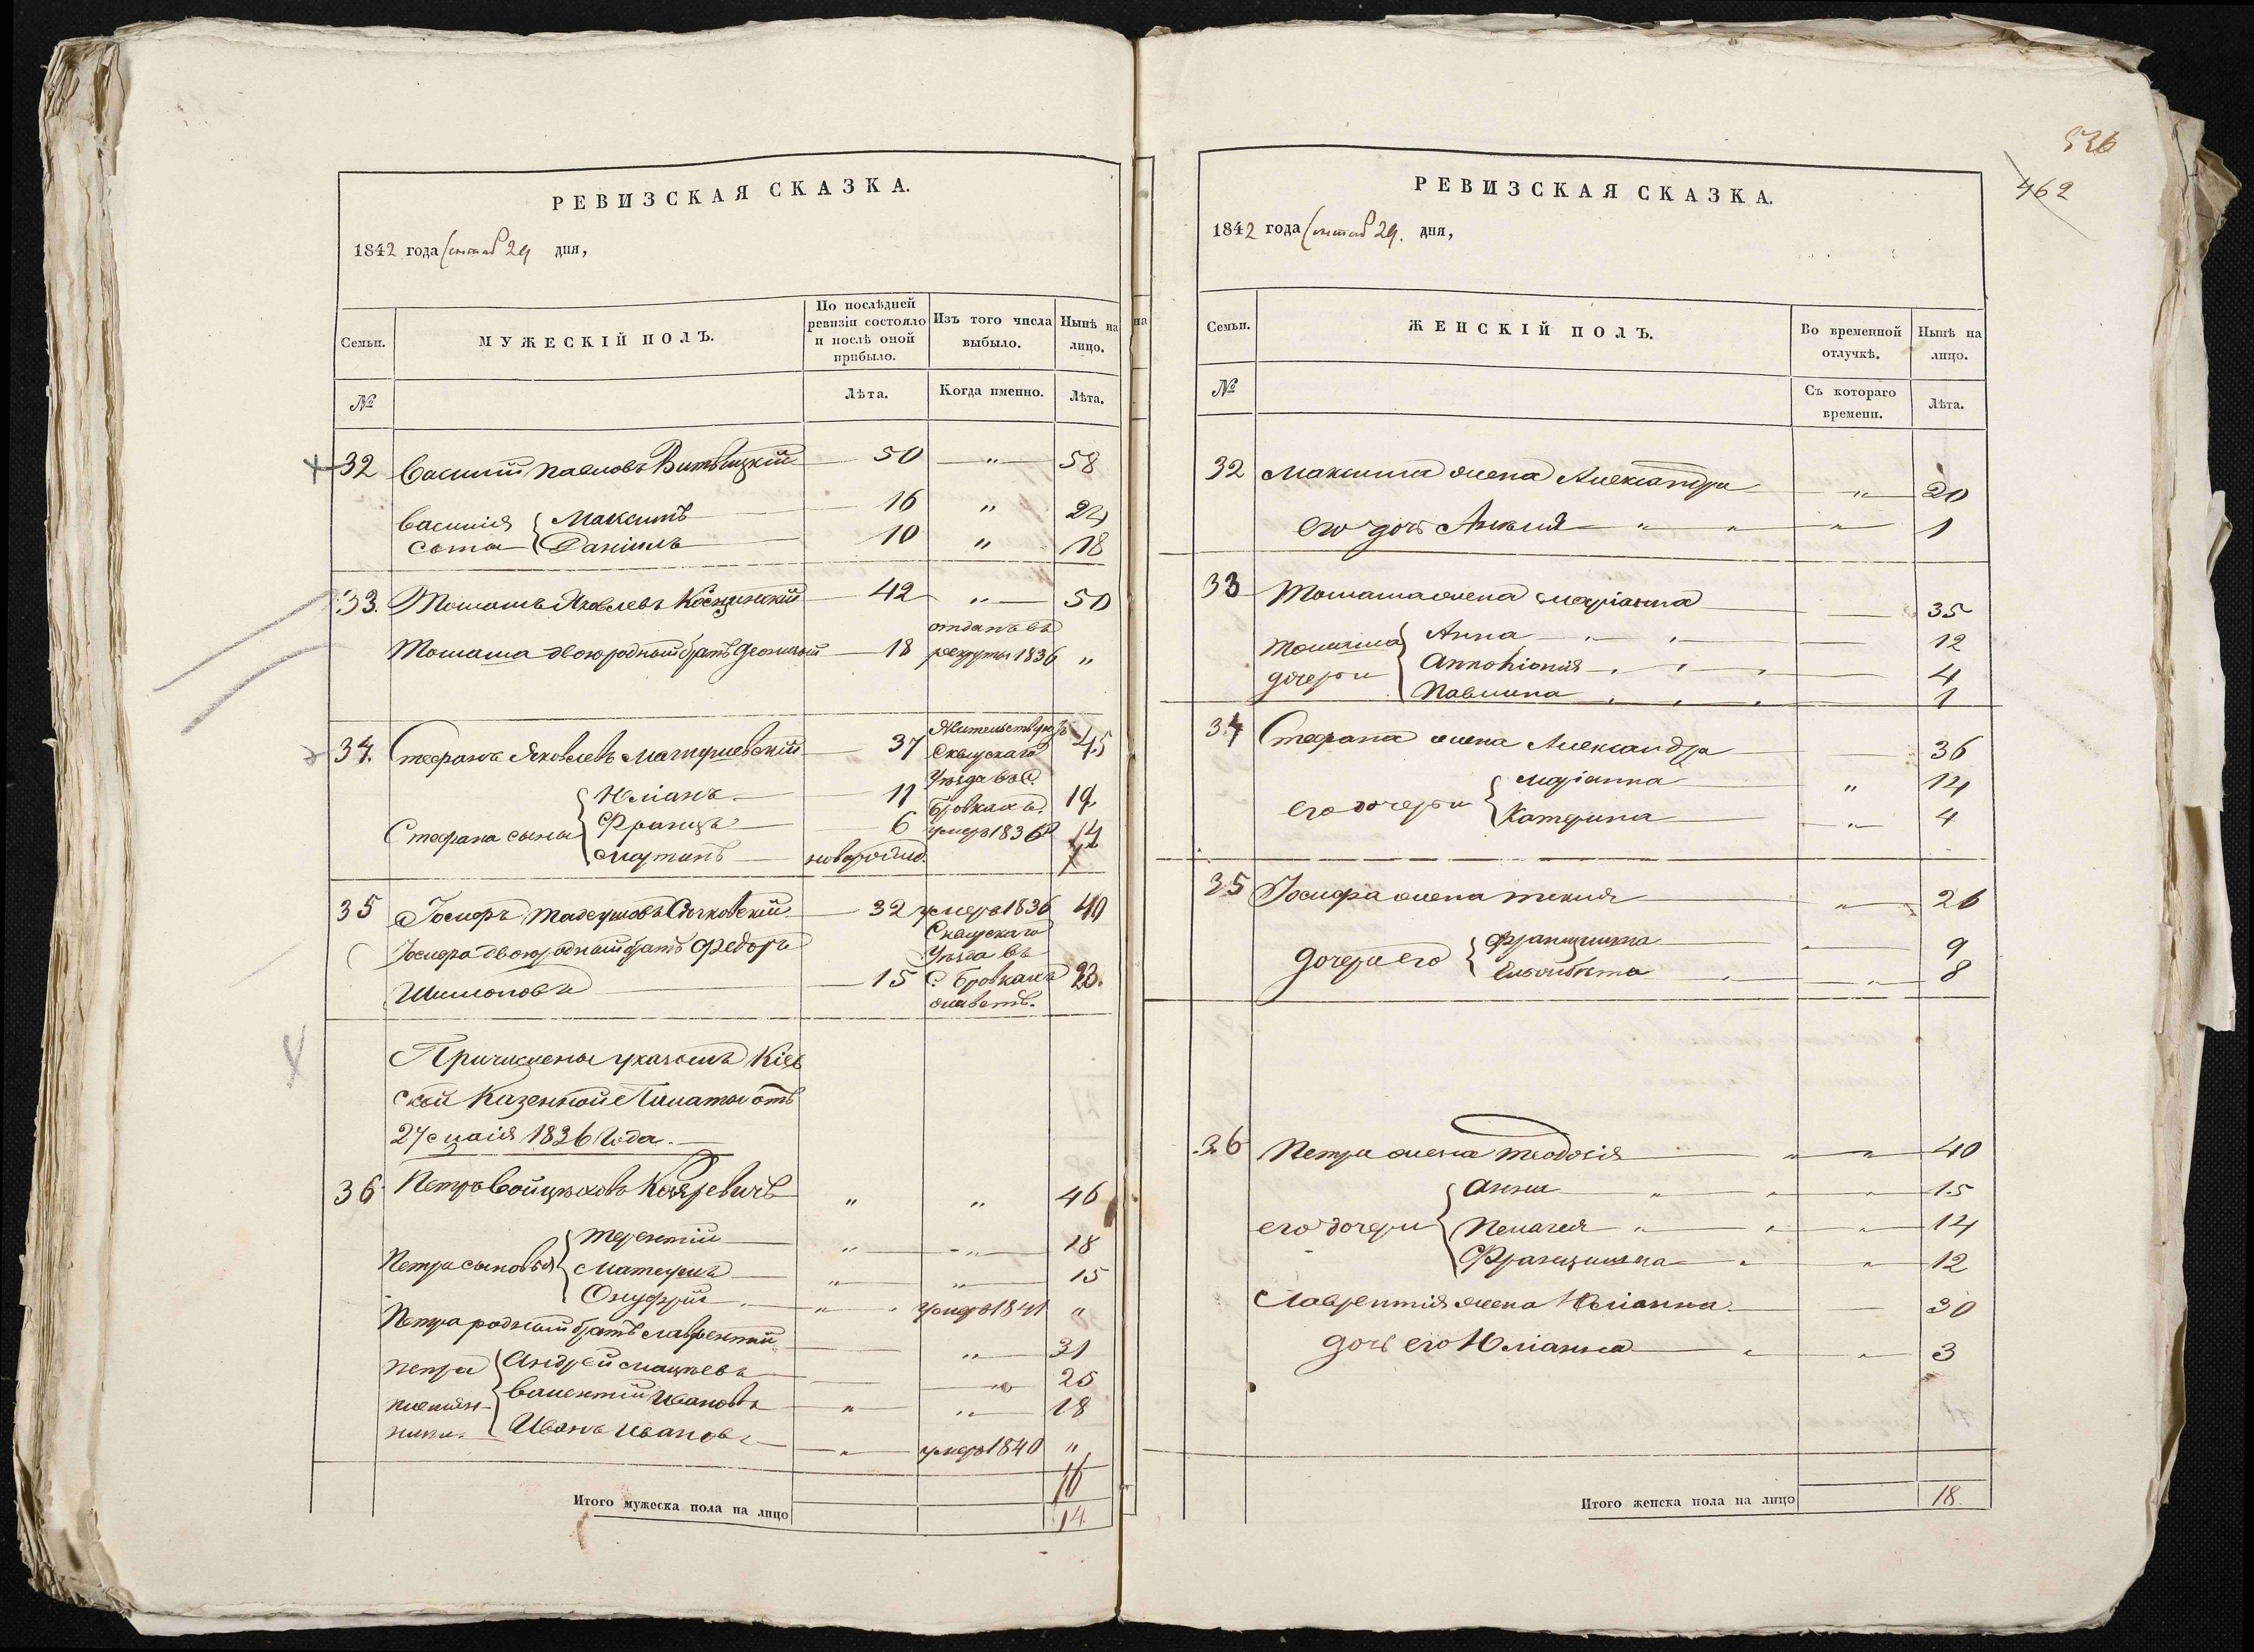 536
462
РЕВИЗСКАЯ СКАЗКА.
1842 года 29 дня,
Семьи.
МУЖЕСКІЙ ПОЛЪ.
По послѣдней ревизіи состояло и послѣ оной прибыло.
Изъ того числа выбыло.
Нынѣ на лицо.
№
Лѣта.
Когда именно.
Лѣта.
32 Василій Павловъ Витвицкій 50 " 58
Василія Максимъ 16 " 24
сына Даніилъ 10 " 18
33. Томашъ Яковлевъ 42 " 50
отданъ въ
Томаша двоюродный братъ 18 рекруты 1836 "
34. Стефанъ Яковлевъ 37 45
Сквирскаго
Уѣзда въ С.
Юліанъ 11 Бровкахъ. 19
Стефана сыны Францъ 6 умеръ 1836 14
Мартинъ новорожд. 7
35 Іосифъ Тадеушовъ 32 умеръ 1836 40
Сквирскаго
Іосифа двоюродный братъ Федоръ Уѣзда въ
Шимоновъ 15 С. Бровкахъ 23.
Причислены указомъ Кіев
ской Казенной Палаты отъ
27 1836 года.
36 Петръ Войцѣховъ " " 46
Терентій " " 18
Петра сыновья Матеушъ " " 15
Онуфрій " умеръ 1841 "
Петра родный братъ Лаврентій " 31
Петра Андрей Мацѣевъ " 25
племян- Валентій Ивановъ " " 18
ники. Иванъ Ивановъ " умеръ 1840 "
16
Итого мужеска пола на лицо 14
РЕВИЗСКАЯ СКАЗКА.
1842 года 29. дня,
Семьи.
ЖЕНСКІЙ ПОЛЪ.
Во временной отлучкѣ.
Нынѣ на лицо.
№
Съ котораго времени.
Лѣта.
32 Максима жена Александра " 20
его дочь " " " 1
33 Томаша жена Маріанна 35
Томаша Анна 12
дочери 4
Павлина 1
34 Стефана жена Александра 36
его дочери Маріанна " 14
Катерина " 4
35 Іосифа жена Текля " 26
дочери его Францишка 9
8
36 Петра жена Теодозія " " 40
Анна " " " 15
его дочери Пелагея " " " 14
Францишка " " 12
Лаврентія жена Юліанна 30
дочь его Юліанна " " 3
Итого женска пола на лицо 18.